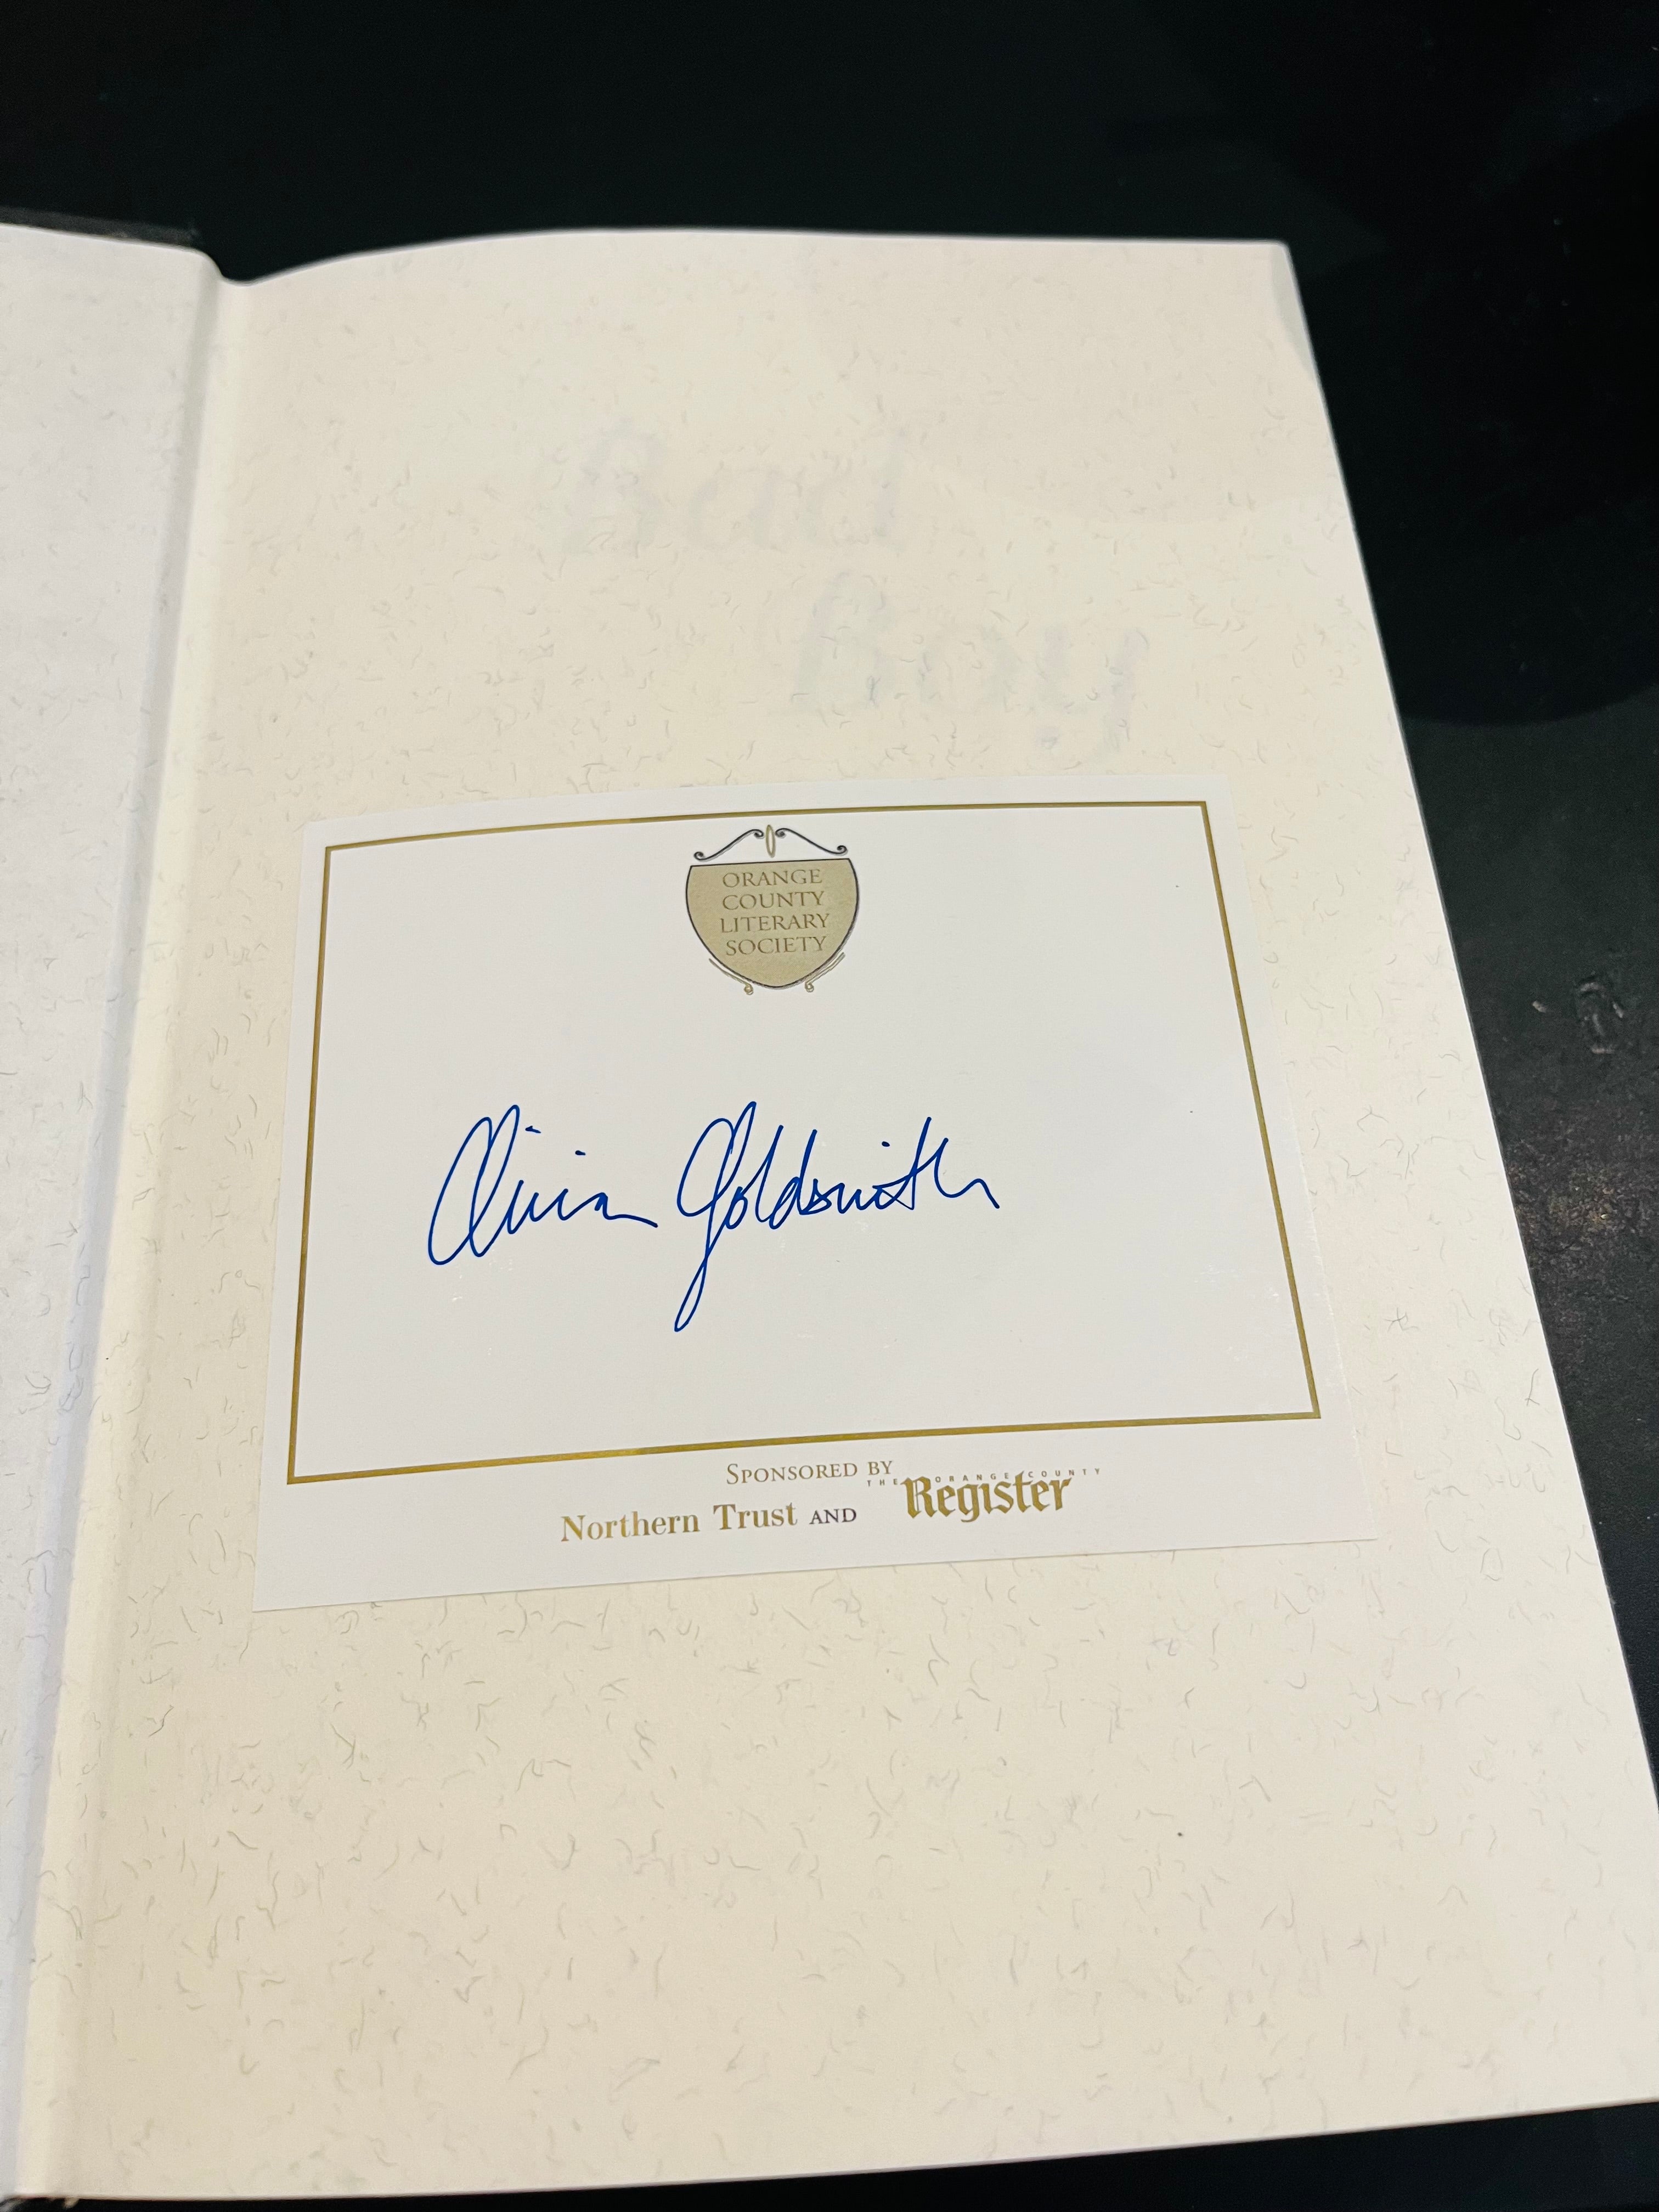 ORANGE
COUNTY
LITERARY
SOCIETY
Olivia Goldsmith
SPONSORED BY
Northern Trust AND THE ORANGE COUNTY Register